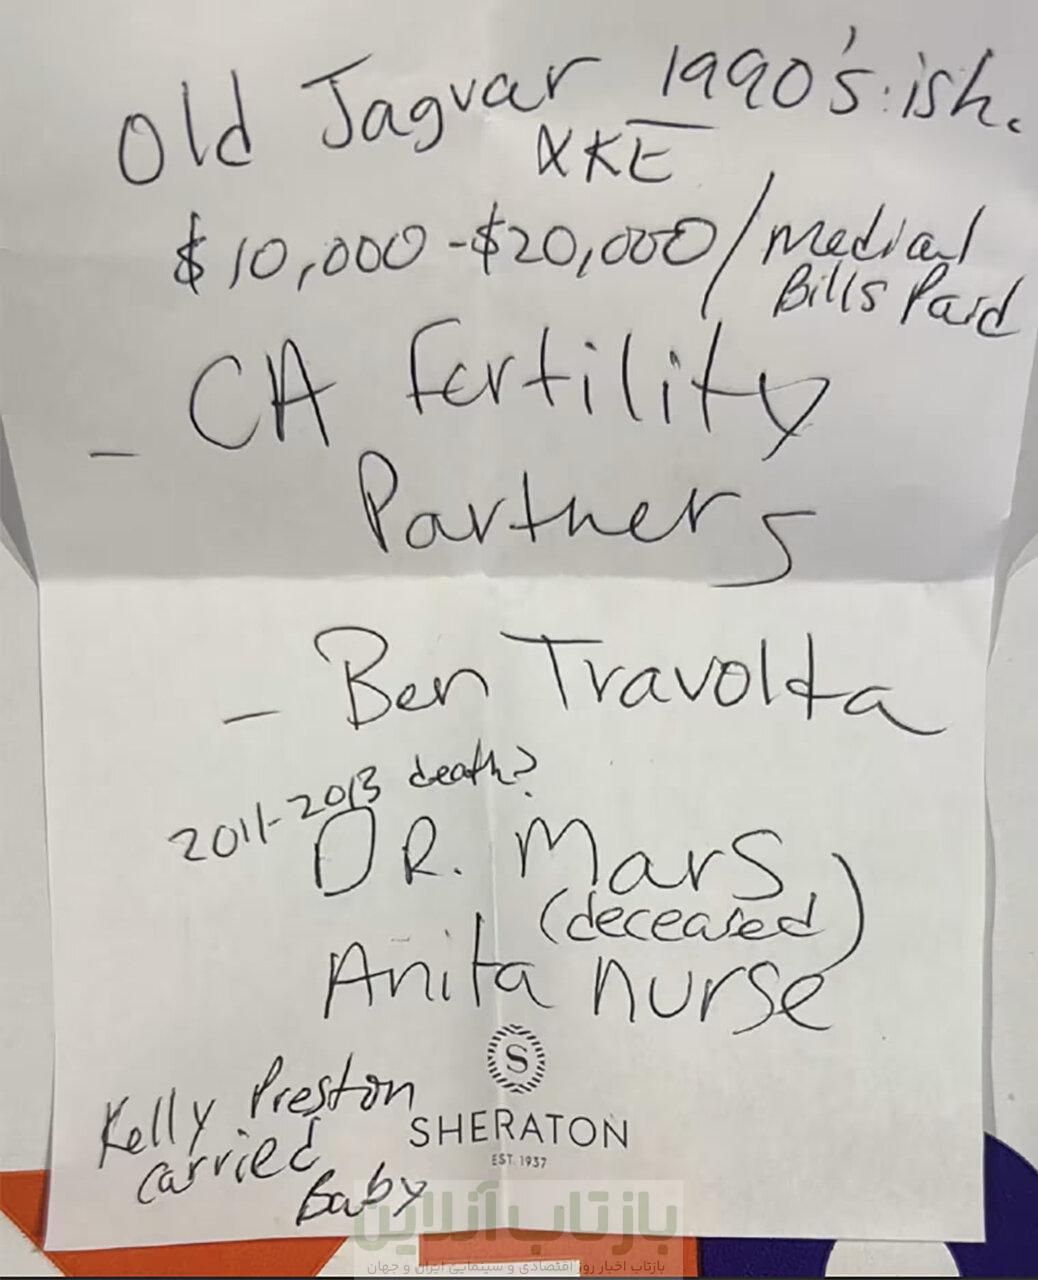 Old Jaguar 1990's: ish.
XKE
$10,000 - $20,000 / Medical
Bills Paid
- CA Fertility
Partners
- Ben Travolta
2011-2013 death?
DR. Mars
(deceased)
Anita nurse
Kelly Preston
carried
Baby
S
SHERATON
EST. 1937
بازتاب آنلاین
بازتاب اخبار روز اقتصادی و سینمایی ایران و جهان